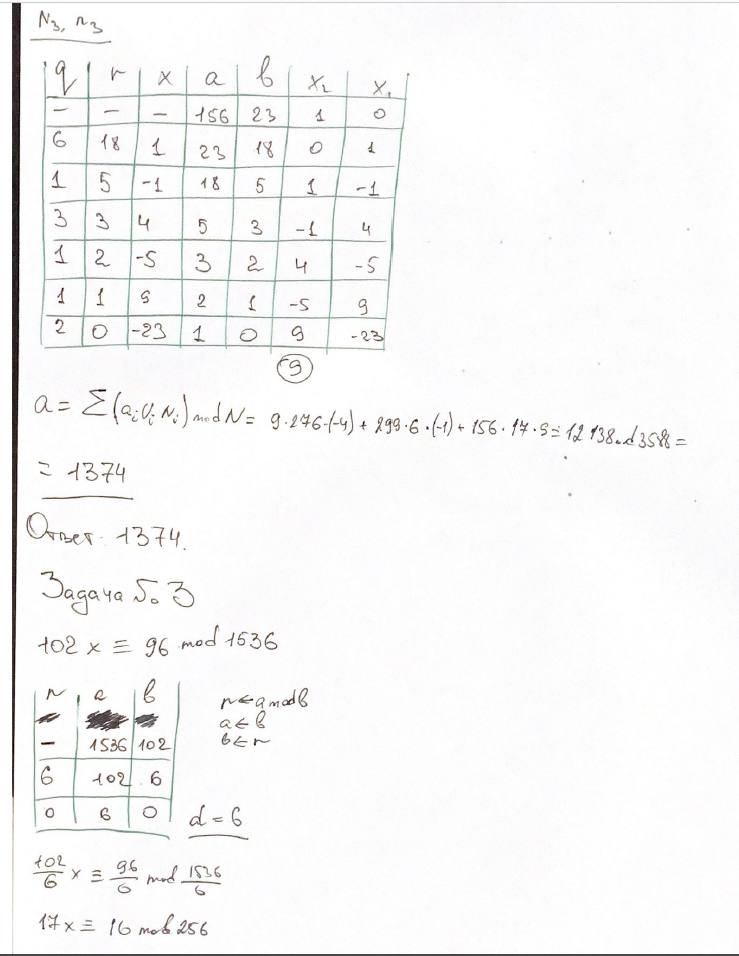 N₃, n₃
q r x a b x₂ x₁
– – – 156 23 1 0
6 18 1 23 18 0 1
1 5 -1 18 5 1 -1
3 3 4 5 3 -1 4
1 2 -5 3 2 4 -5
1 1 9 2 1 -5 9
2 0 -23 1 0 9 -23
9
a = Σ(aᵢUᵢNᵢ) mod N = 9·276·(-4) + 299·6·(-1) + 156·17·9 = 12138 mod 3588 =
= 1374
Ответ: 1374.
Задача №3
102x ≡ 96 mod 1536
r a b
– 1536 102
6 102 6
0 6 0
r ← a mod b
a ← b
b ← r
d = 6
102/6 x ≡ 96/6 mod 1536/6
17x ≡ 16 mod 256